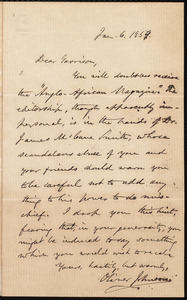 Jan. 6, 1859.
Dear Garrison,
You will doubtless receive
the "Anglo-African Magazine." The
editorship, though apparently im-
personal, is in the hands of Dr.
James McCune Smith, whose
scandalous abuse of you and
your friends should warn you
to be careful not to add any
thing to his power to do mis-
chief. I drop you this hint,
fearing that, in your generosity, you
might be induced to say something
which you would wish to recall.
Yours, hastily, but warmly,
Oliver Johnson